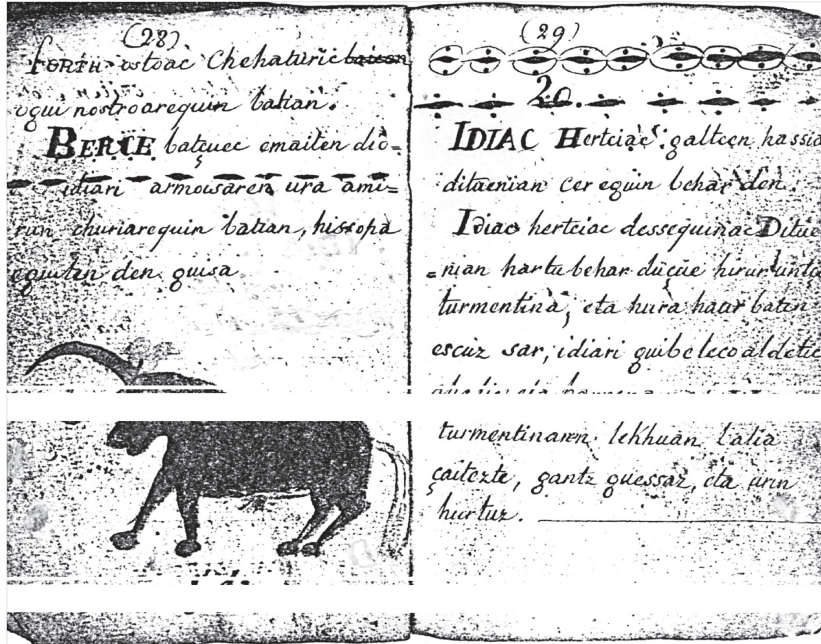 (28)
fortu ostoac chehaturic batcon
ogui nostroarequin batian.
BERCE batçuec emaiten dio=
idiari armoisaren ura ami=
run churiarequin batian, hissopa
eguiten den guisa
(29)
20.
IDIAC Hertciac galtcen hassia
ditaenian cer eguin behar den.
Idiac hertciac dessequinac Ditue
=nian hartu behar duçüe hirur untça
turmentina, eta hura haur baten
escuz sar, idiari guibeleco aldetic
turmentinaren lekhuan balia
çaitezte, gantz guessaz, eta urin
hurtuz.